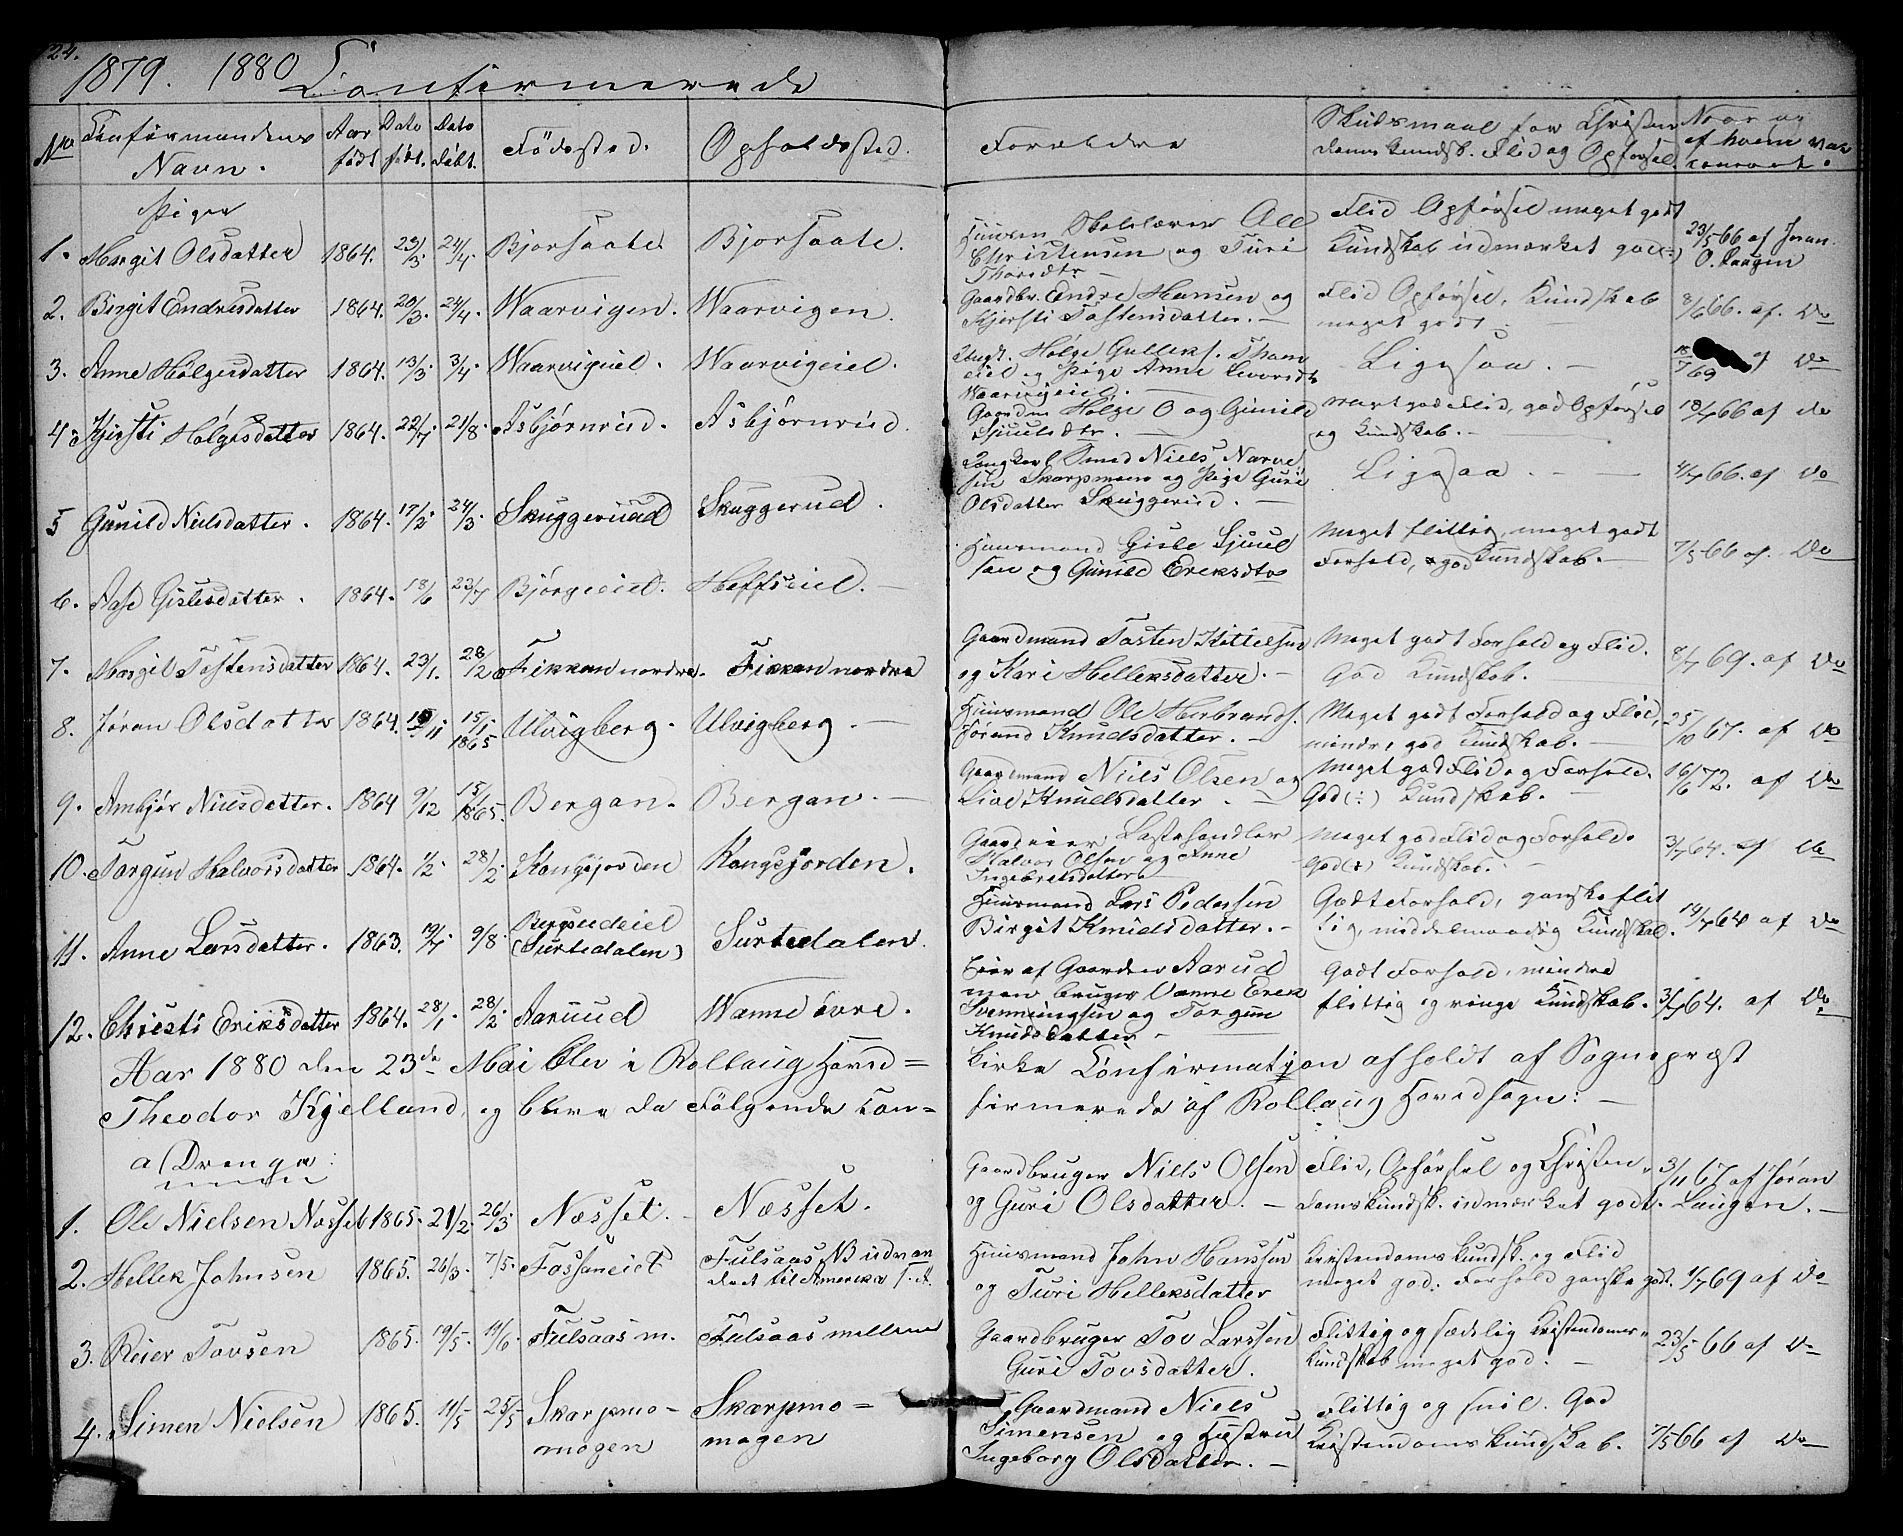 24.
1879. 1880 Confirmerede
No Confirmandens Navn. Aar født Dato født. Dato Døbt. Fødested. Opholdssted. Forældre Skudsmaal for Christendomskundsk. Flid og Opførsel. Naar og af hvem vac
Piger
1. Margit Olsdatter 1864. 23/3. 24/4. Bjorsaate Bjorsaate. Skolelærer Ole
Christensen og Turi
Thorsdtr Flid Opførsel meget godt
Kundskab udmærket god(÷) 23/5 66 af Jøran
O. Laagen
2. Birgit Endresdatter 1864. 20/3. 24/4. Waarvigen. Waarvigen. Gaardbr. Endre Hansen og
Kjersti Tostensdatter. Flid Opførsel, Kundskab
meget godt. 8/6 66. af. Do
3. Anne Holgesdatter 1864. 13/3. 3/4. Waarvigeiel. Waarvigeiel. Ungk. Holge Gulleks.
og Pige Anne
Waarvigeiel. Ligesaa. /69 af Do
4. Kjersti Holgesdatter 1864. 22/7. 21/8. Asbjørnrud. Asbjørnrud. Holge O og Gunild
Sjuulsdtr. Meget god Flid, god Opførsel
og Kundskab. 18/7 66 af do
5 Gunild Nielsdatter. 1864. 17/2. 24/3. Skuggeruud Skuggerud. Ungkarl Smed Niels Narve
sen Skarpmoen og Pige Guri
Olsdatter Skuggerud. Ligesaa 4/7 66. af Do
6. Aase Gislesdatter. 1864. 18/6 23/7 Bjørgeeiel. Heffteeiel. Huusmand Gisle Sjuul
sen og Gunild Eriksdtr Meget flittig, meget godt
Forhold, god Kundskab. 7/5 66 af. Do
7. Margit Tostensdatter 1864. 23/1. 28/2 Fikkan nordre. Fikkan nordre Gaardmand Tosten Kittelsen
og Kari Helleksdatter. Meget godt Forhold og Flid.
God Kundskab. 8/7 69. af Do
8. Jøran Olsdatter 1864. /11 15/1 1865 Ulvigberg. Ulvigberg. Huusmand Ole Herbrands.
Jørand Knudsdatter. Meget godt Forhold og Flid,
mindre god Kundskab. 25/10 67. af Do
9. Ambjør Nielsdatter. 1864 9/12 15/1 1865. Bergan. Bergan. Gaardmand Niels Olsen og
Live Knudsdatter. Meget god Flid og Forhold.
God(÷) Kundskab. 16/6 72. af Do
10. Torgun Halvorsdatter 1864. 1/2. 28/2 Kongsjorden Kongsjorden. Gaardeier, Lastehandler
Halvor Olsen og Anne
Ingebretsdatter Meget god Flid og Forhold
God(÷) Kundskab. 3/7 64. af do
11. Anne Larsdatter. 1863. 19/7 9/8. (Surtedalen) Surtedalen. Huusmand Lars Pedersen
Birgit Knudsdatter. Godt Forhold, ganske flit
tig, middelmaadig Kundskab. 14/7 64 af Do
12. Christi Eriksdatter 1864. 28/1. 28/2. Aaruud Wanne øvre. Eier af Gaarden Aarud
men bruger Vamne Erik
Svenningsen og Torgun
Knudsdatter Godt Forhold, mindre
flittig og ringe Kundskab. 3/7 64. af Do
Aar 1880 den 23de Mai blev i Rollaug Hoved=
Kirke Confirmation afholdt af Sognepræst
Theodor Kjelland, og bleve da Følgende con=
firmerede af Rollaug Hovedsogn:
a) Drenge:
1. Ole Nielsen Næsset 1865. 21/2. 26/3. Næsset. Næsset. Gaardbruger Niels Olsen
og Guri Olsdatter. Flid, Opførsel og Christen-
domskundsk. udmærket godt. 3/11 67 af Jøran
Laugen.
2. Hellek Johnsen 1865. 26/3. 7/5. Fossaneiet Fulsaas NB udvan
dret til Amerika Huusmand John Hanssen
og Turi Helleksdatter Kristendoms Kundsk. og Flid
meget god. Forhold ganske godt. 1/7 69 af Do
3. Reier Tovsen 1865. 19/5. 11/6. Fulsaas m. Fulsaas mellem Gaardbruger Tov Larssen
Guri Tovsdatter. Flittig og sædelig Kristendoms=
Kundskab meget god. 23/5 66 af Do
4. Simen Nielsen 1865. 11/5 25/5 Skarpmo-
mogen Skarpmo=
mogen Gaardmand Niels
Simensen og Hustru
Ingeborg Olsdatter. Flittig og snil. God
Kristendoms Kundskab. 7/5 66 af Do